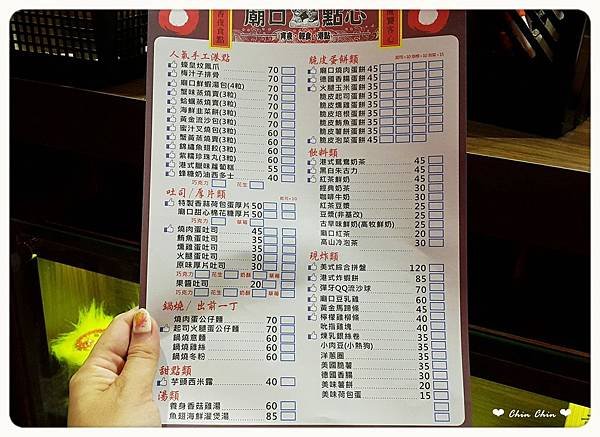 廟口 點心
宵夜.輕食.港點
人氣手工港點
蠔皇炆鳳爪 70
梅汁子排骨 70
廟口鮮蝦湯包(4粒) 70
蟹味蒸燒賣(3粒) 70
蛤蠣蒸燒賣(3粒) 70
海鮮韭菜餅(3粒) 70
黃金流沙包(3粒) 70
蜜汁叉燒包(3粒) 60
蟹黃蒸燒賣(3粒) 60
錦繡魚翅餃(3粒) 60
紫糯珍珠丸(3粒) 60
港式臘味蘿蔔糕 55
蜂糖奶油西多士 40
巧克力 花生
吐司/厚片類
起司+10
特製香蒜荷包蛋厚片 50
廟口甜心棉花糖厚片 50
巧克力 草莓
燒肉蛋吐司 45
鮪魚蛋吐司 35
燻雞蛋吐司 35
火腿蛋吐司 30
原味厚片吐司 30
巧克力 花生 奶酥 草莓
果醬吐司 20
巧克力 花生 奶酥 草莓
鍋燒/ 出前一丁
燒肉蛋公仔麵 70
起司火腿蛋公仔麵 70
鍋燒意麵 60
鍋燒雞絲 60
鍋燒冬粉 60
甜點類
芋頭西米露 40
湯類
養身香菇雞湯 60
魚翅海鮮灌煲湯 85
脆皮蛋餅類
廟口燒肉蛋餅 45
德國香腸蛋餅 45
火腿玉米蛋餅 45
脆皮起司蛋餅 35
脆皮燻雞蛋餅 35
脆皮培根蛋餅 35
脆皮鮪魚蛋餅 35
脆皮薯餅蛋餅 35
脆皮泡菜蛋餅 45
飲料類
港式鴛鴦奶茶 45
黑白朱古力 45
紅茶鮮奶 45
經典奶茶 30
咖啡牛奶 30
紅茶豆漿 25
豆漿(非基改) 25
古早味鮮奶(高牧鮮奶) 35
廟口紅茶 20
高山冷泡茶 30
現炸類
美式綜合拼盤 120
港式炸蝦餅 85
彈牙QQ流沙球 70
廟口豆乳雞 60
黃金馬蹄條 45
檸檬雞柳條 45
吮指雞塊 40
煉乳銀絲卷 35
小肉豆(小熱狗) 35
洋蔥圈 35
美國脆薯 35
德國香腸 30
美味薯餅 20
美味荷包蛋 15
❤ Chin Chin ❤